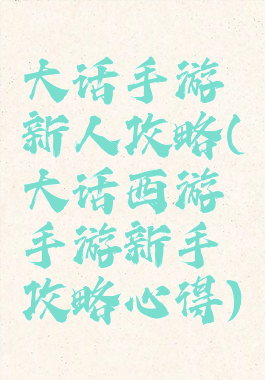 大话手游
新人攻略(
大话西游
手游新手
攻略心得)